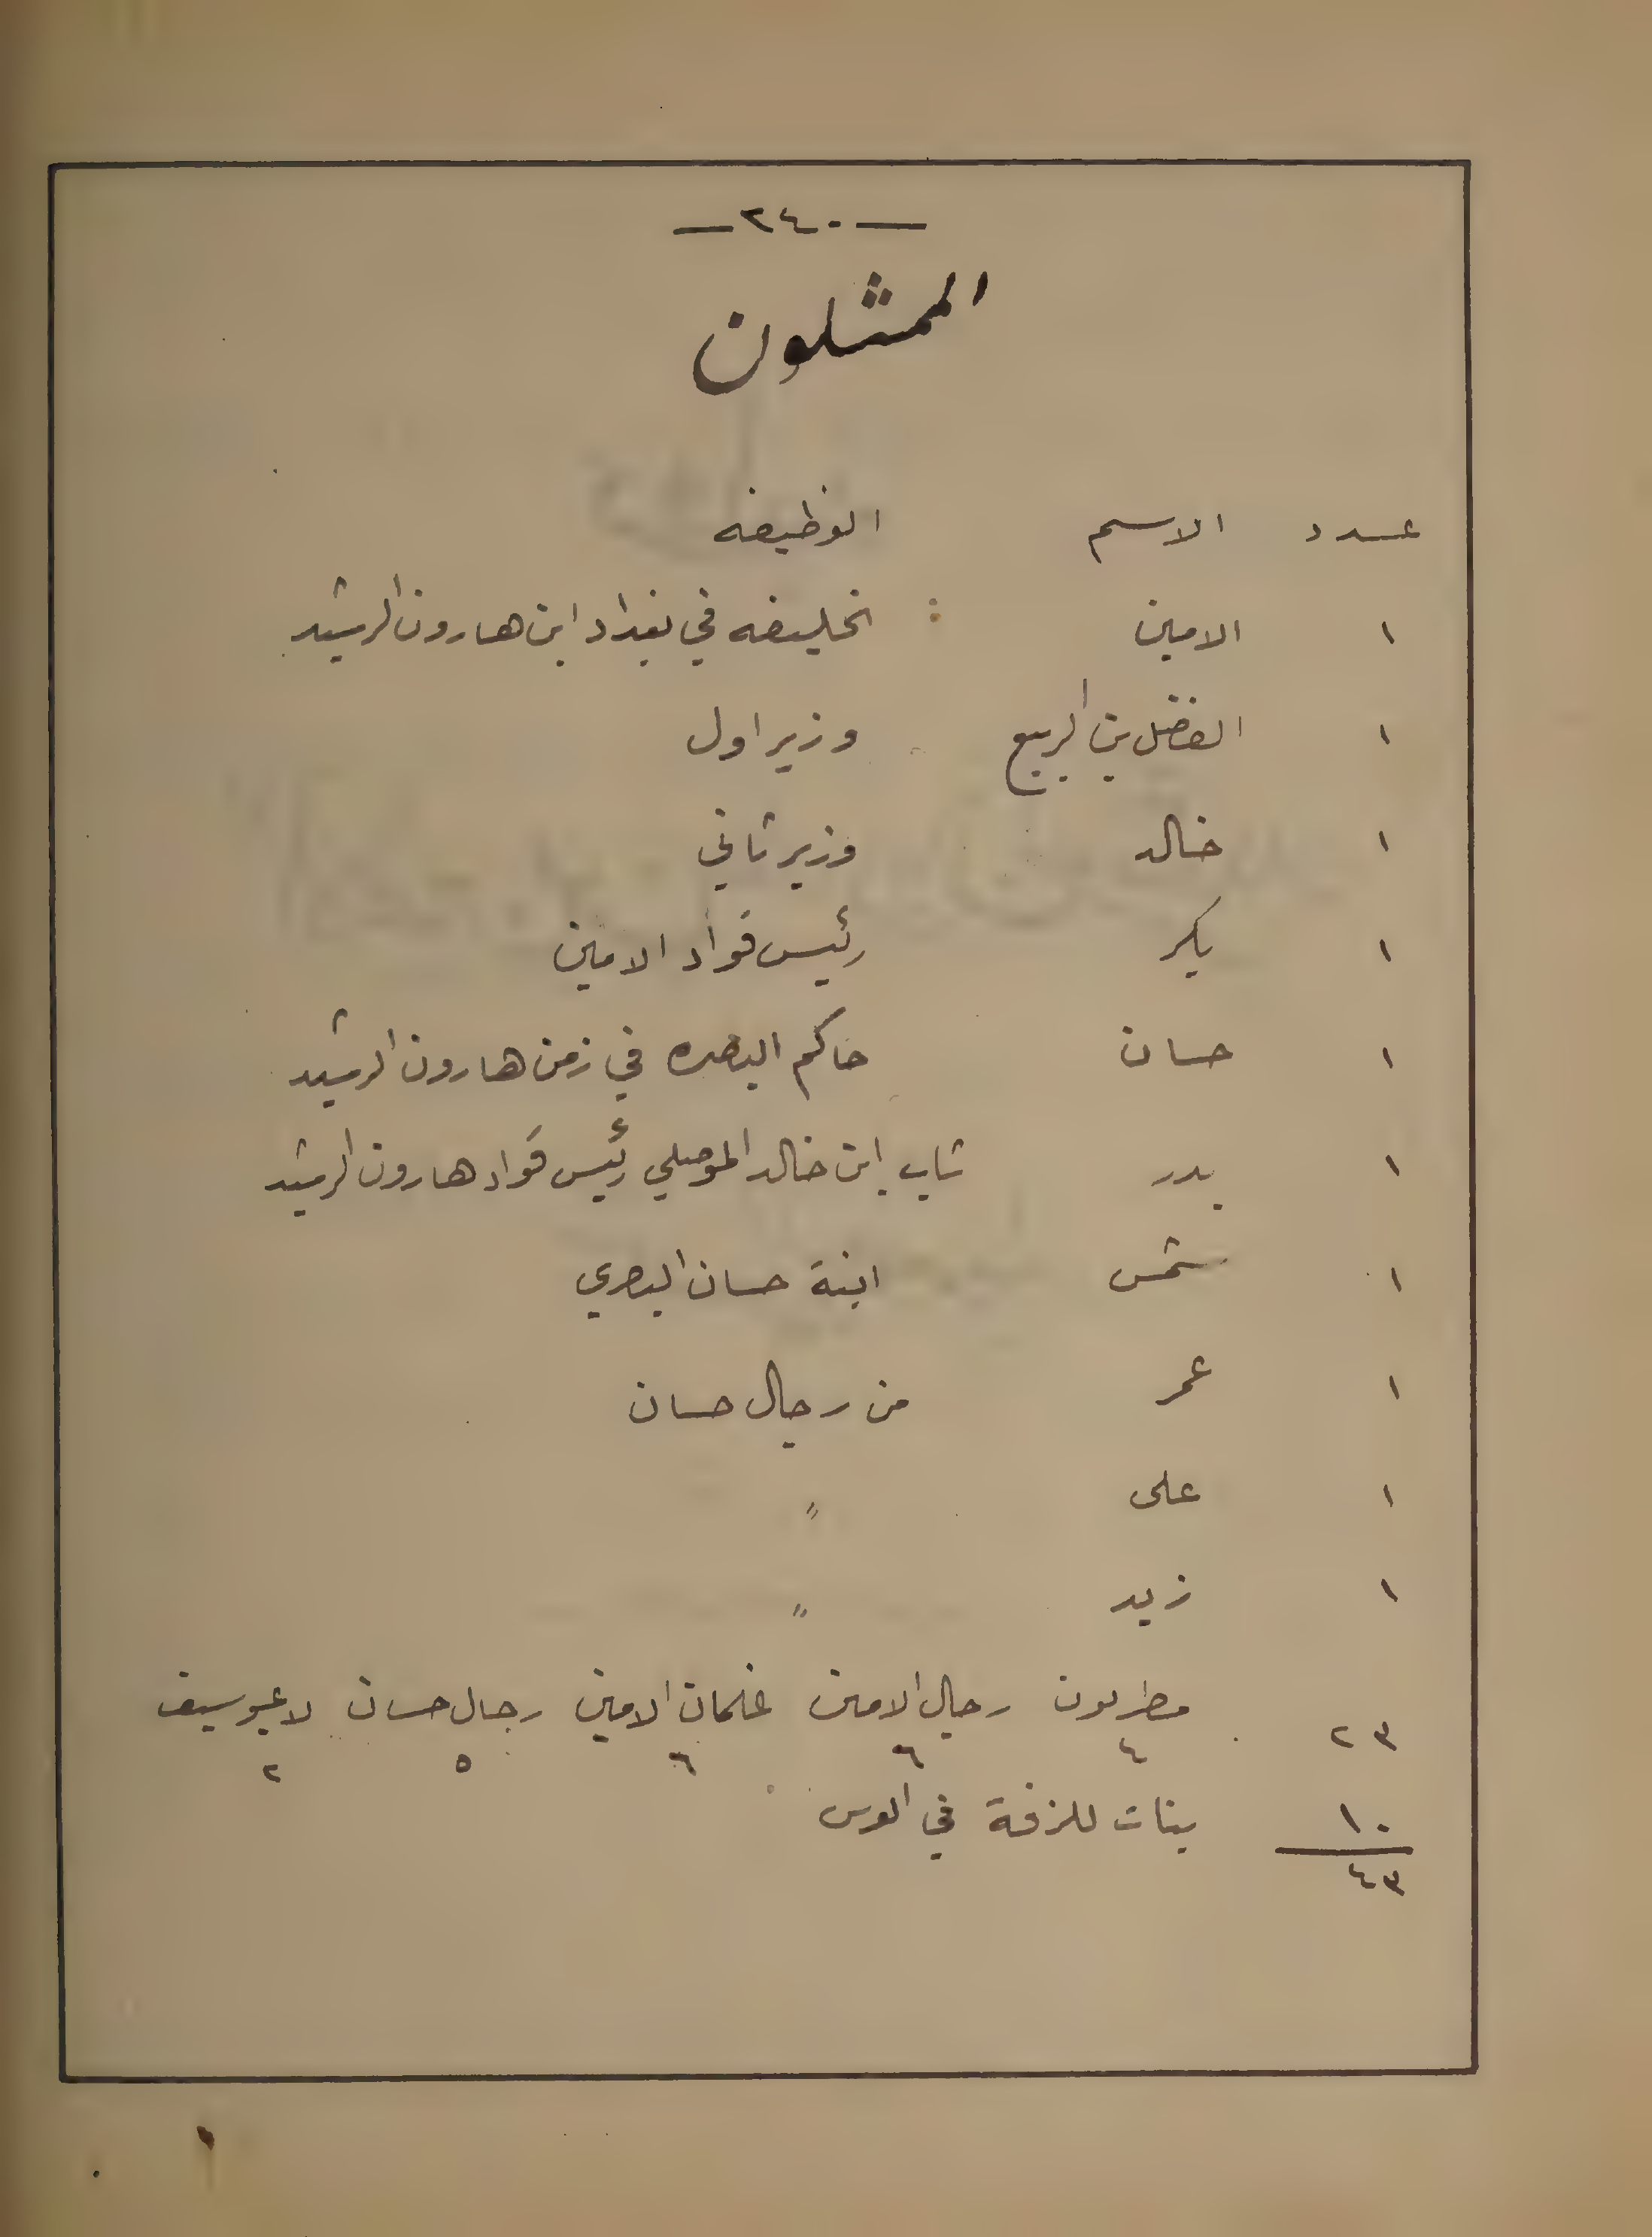 —٢٤٠—
الممثلون
عدد الاسم الوظيفه
١ الامين : الخليفه في بغداد ابن هارون الرشيد
١ الفضل بن الربيع وزير اول
١ خالد وزير ثاني
١ بكر رئيس قواد الامين
١ حسان حاكم البصره في زمن هارون الرشيد
١ بدر شاب ابن خالد الموصلي رئيس قواد هارون الرشيد
١ شمس ابنة حسان البصري
١ عمر من رجال حسان
١ على "
١ زيد "
٢٣ مطربون رجال الامين غلمان الامين رجال حسان لاعبو سيف
٤ ٦ ٦ ٥ ٢
١٠ بنات للزفة في العرس
٤٣